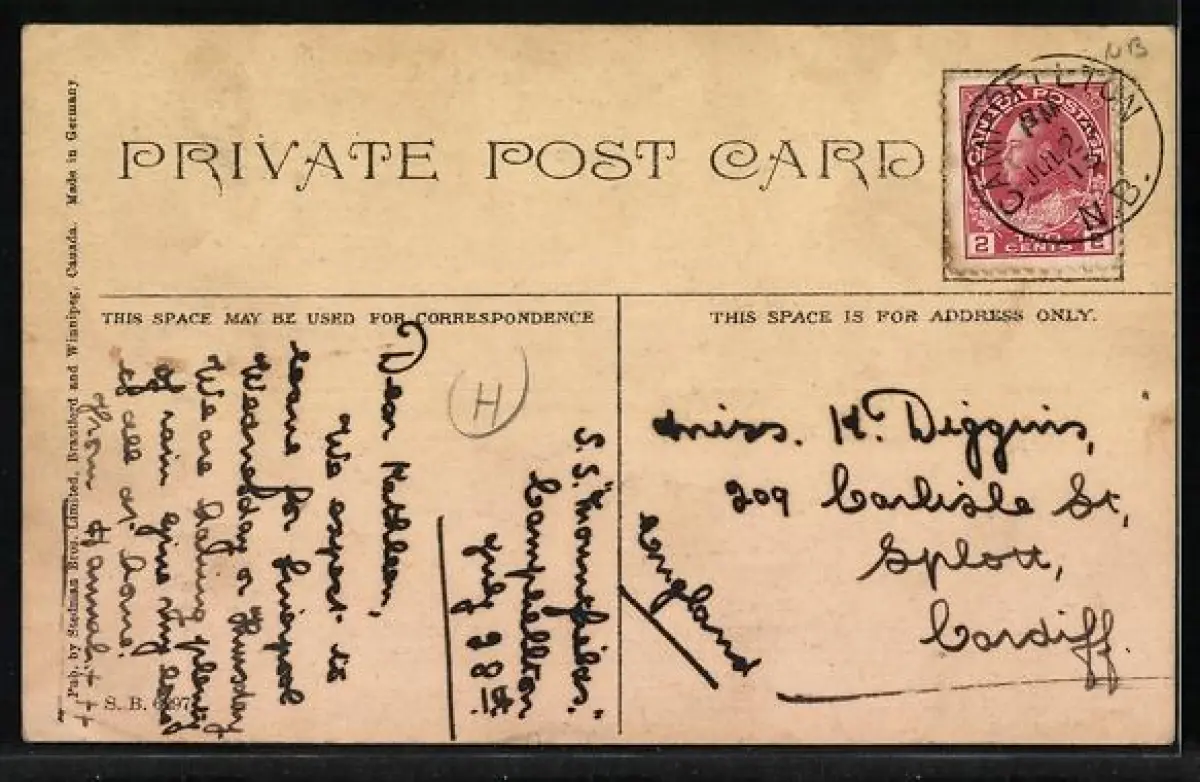 NB
PRIVATE POST CARD
CAMPBELLTON
PM
JUL 2
13
N.B.
CANADA POSTAGE
2 CENTS 2
THIS SPACE MAY BE USED FOR CORRESPONDENCE
THIS SPACE IS FOR ADDRESS ONLY.
H
S.S. "Mountfields."
Campbellton
July 28th.
Dear Kathleen,
We expect to
leave for Liverpool
Wednesday or Thursday
We are having plenty
of rain give my love
to all at home.
From Hannah. + + +
Miss. K. Diggins,
209 Carlisle St,
Splott,
Cardiff.
England
Pub. by Stedman Bros. Limited, Brantford and Winnipeg, Canada. Made in Germany
S. B.